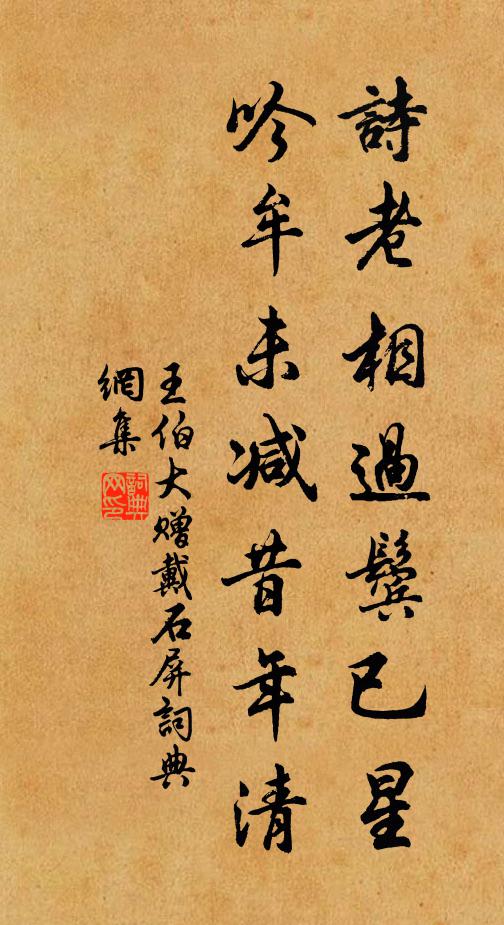 詩老相過鬓已星
吟牟未减昔年清
王伯大赠戴石屏詞典
網集
詞典
网印